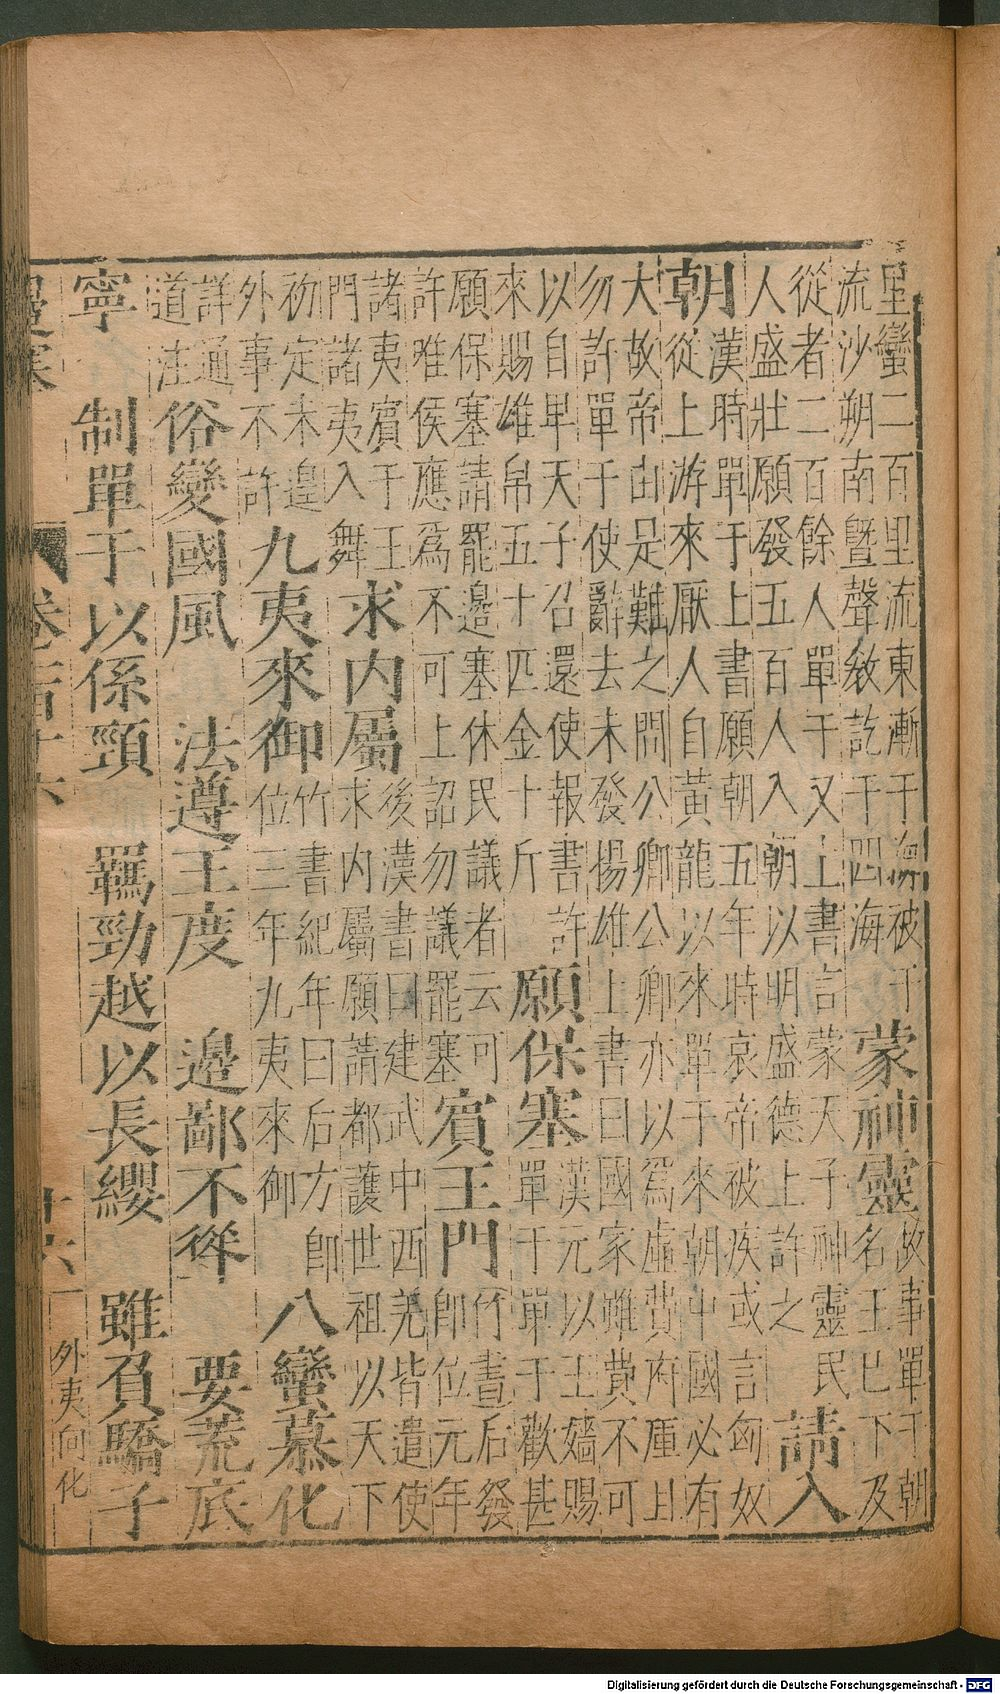 里蠻二百里流東漸于海被于
流沙朔南暨聲教訖于四海
蒙神靈
故事單于朝
名王巳下及
從者二百餘人單于又上書言蒙天子神靈民
人盛壯願發五百人入朝以明盛德上許之
請入
朝
漢時單于上書願朝五年時哀帝被疾或言匈奴
從上游來厭人自黃龍以來單于來朝中國必有
大故帝由足難之問公卿公卿亦以爲虛費府庫且
勿許單于使辭去未發揚雄上書曰國家雖費不可
以自早天子召還使報書許
來賜雄帛五十匹金十斤
願保塞
漢元以王嬙賜
單于單于歡甚
願保塞請罷邊塞休民議者云可
許唯侯應爲不可上詔勿議罷塞
賓王門
竹書后發
卽位元年
諸夷賓于王
門諸夷入舞
求内屬
後漢書曰建武中西羌皆遣使
求内屬願請都護世祖以天下
初定未遑
外事不許
九夷來御
竹書紀年曰后方卽
位三年九夷來御
八蠻慕化
詳通
道注
俗變國風 法遵王度 邊鄙不聳 要荒底
寧 制單于以係頸 羈勁越以長纓 雖負驕子
十六
外夷向化
Digitalisierung gefördert durch die Deutsche Forschungsgemeinschaft - DFG